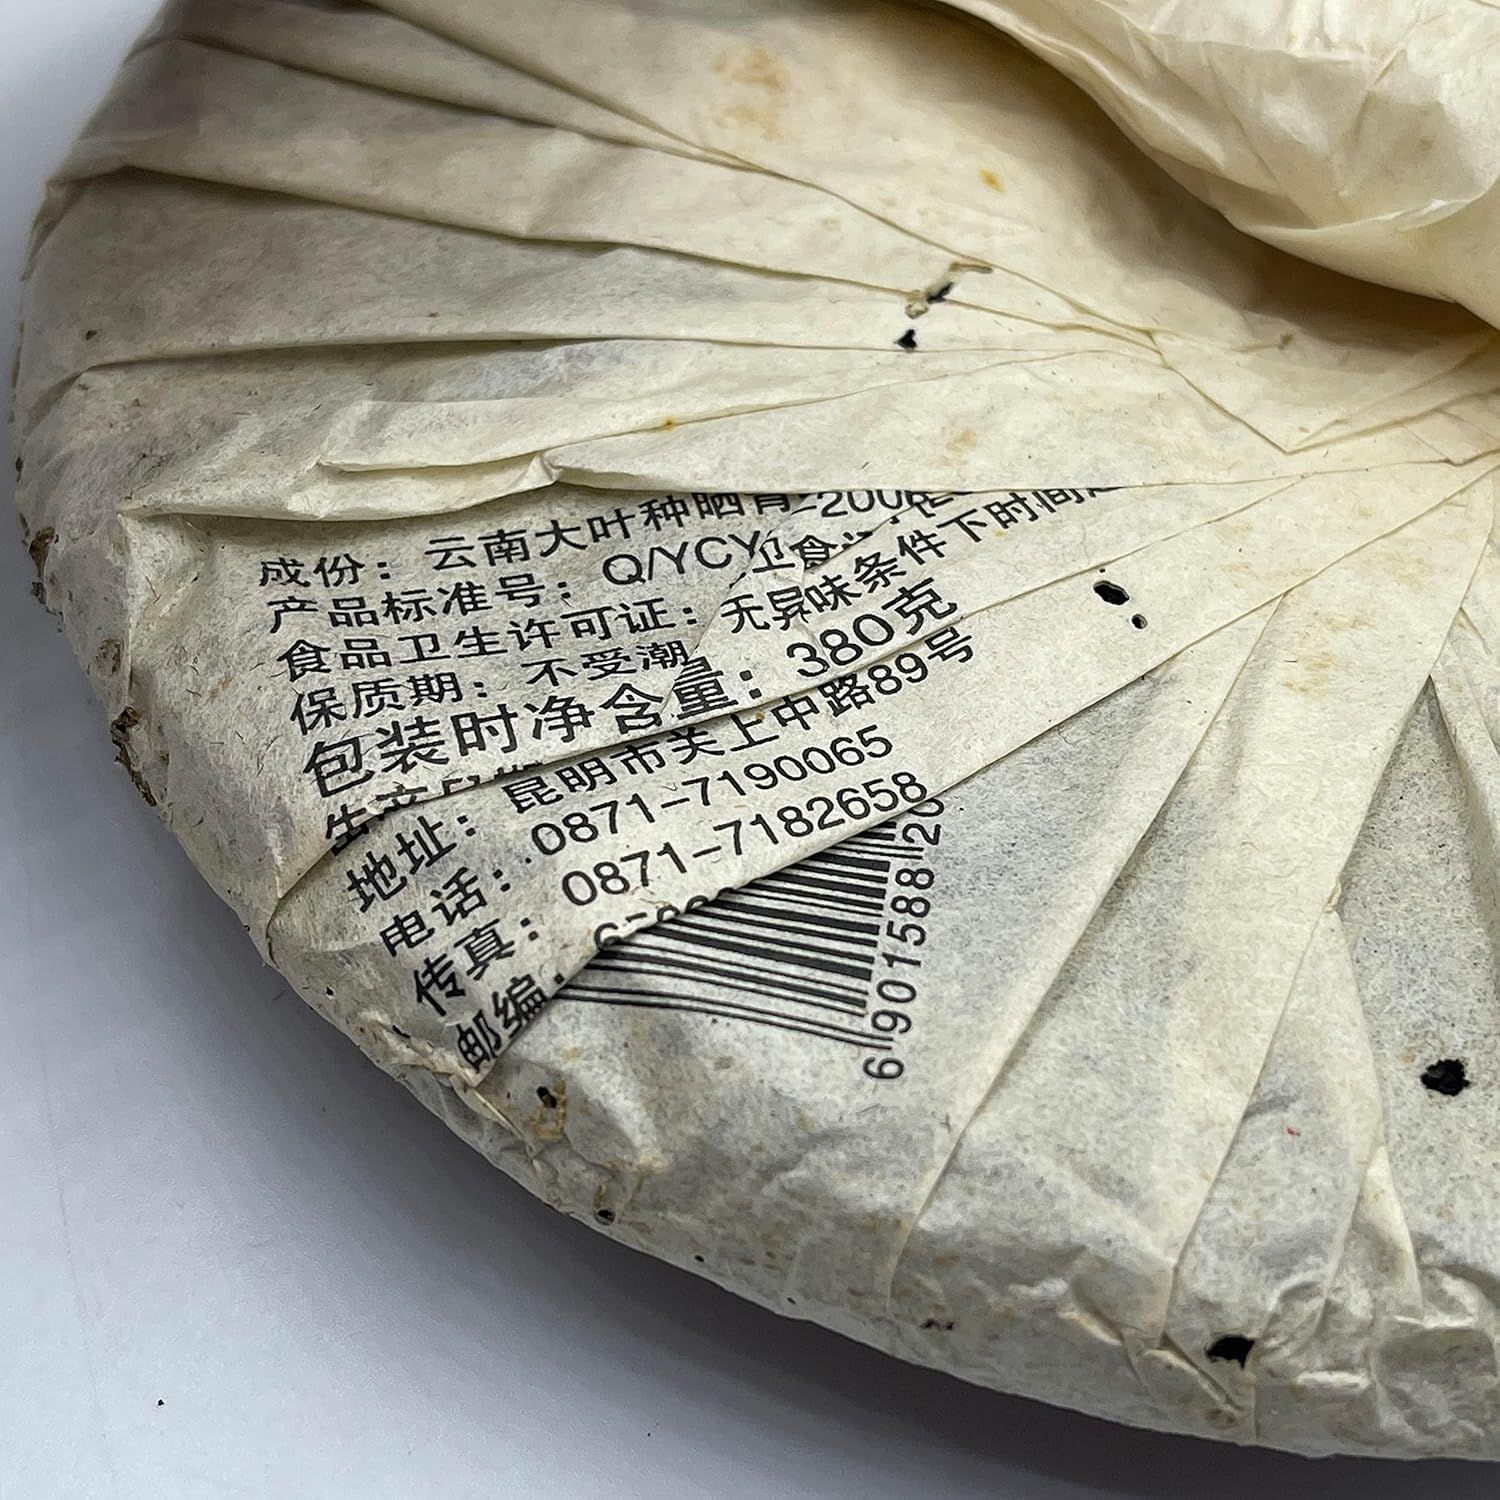 成份：云南大叶种晒青
产品标准号：Q/YCY -200
食品卫生许可证： 卫食
保质期：不受潮 无异味条件下时间
包装时净含量：380克
生产日
地址：昆明市关上中路89号
电话：0871-7190065
传真：0871-7182658
邮编：
6901588